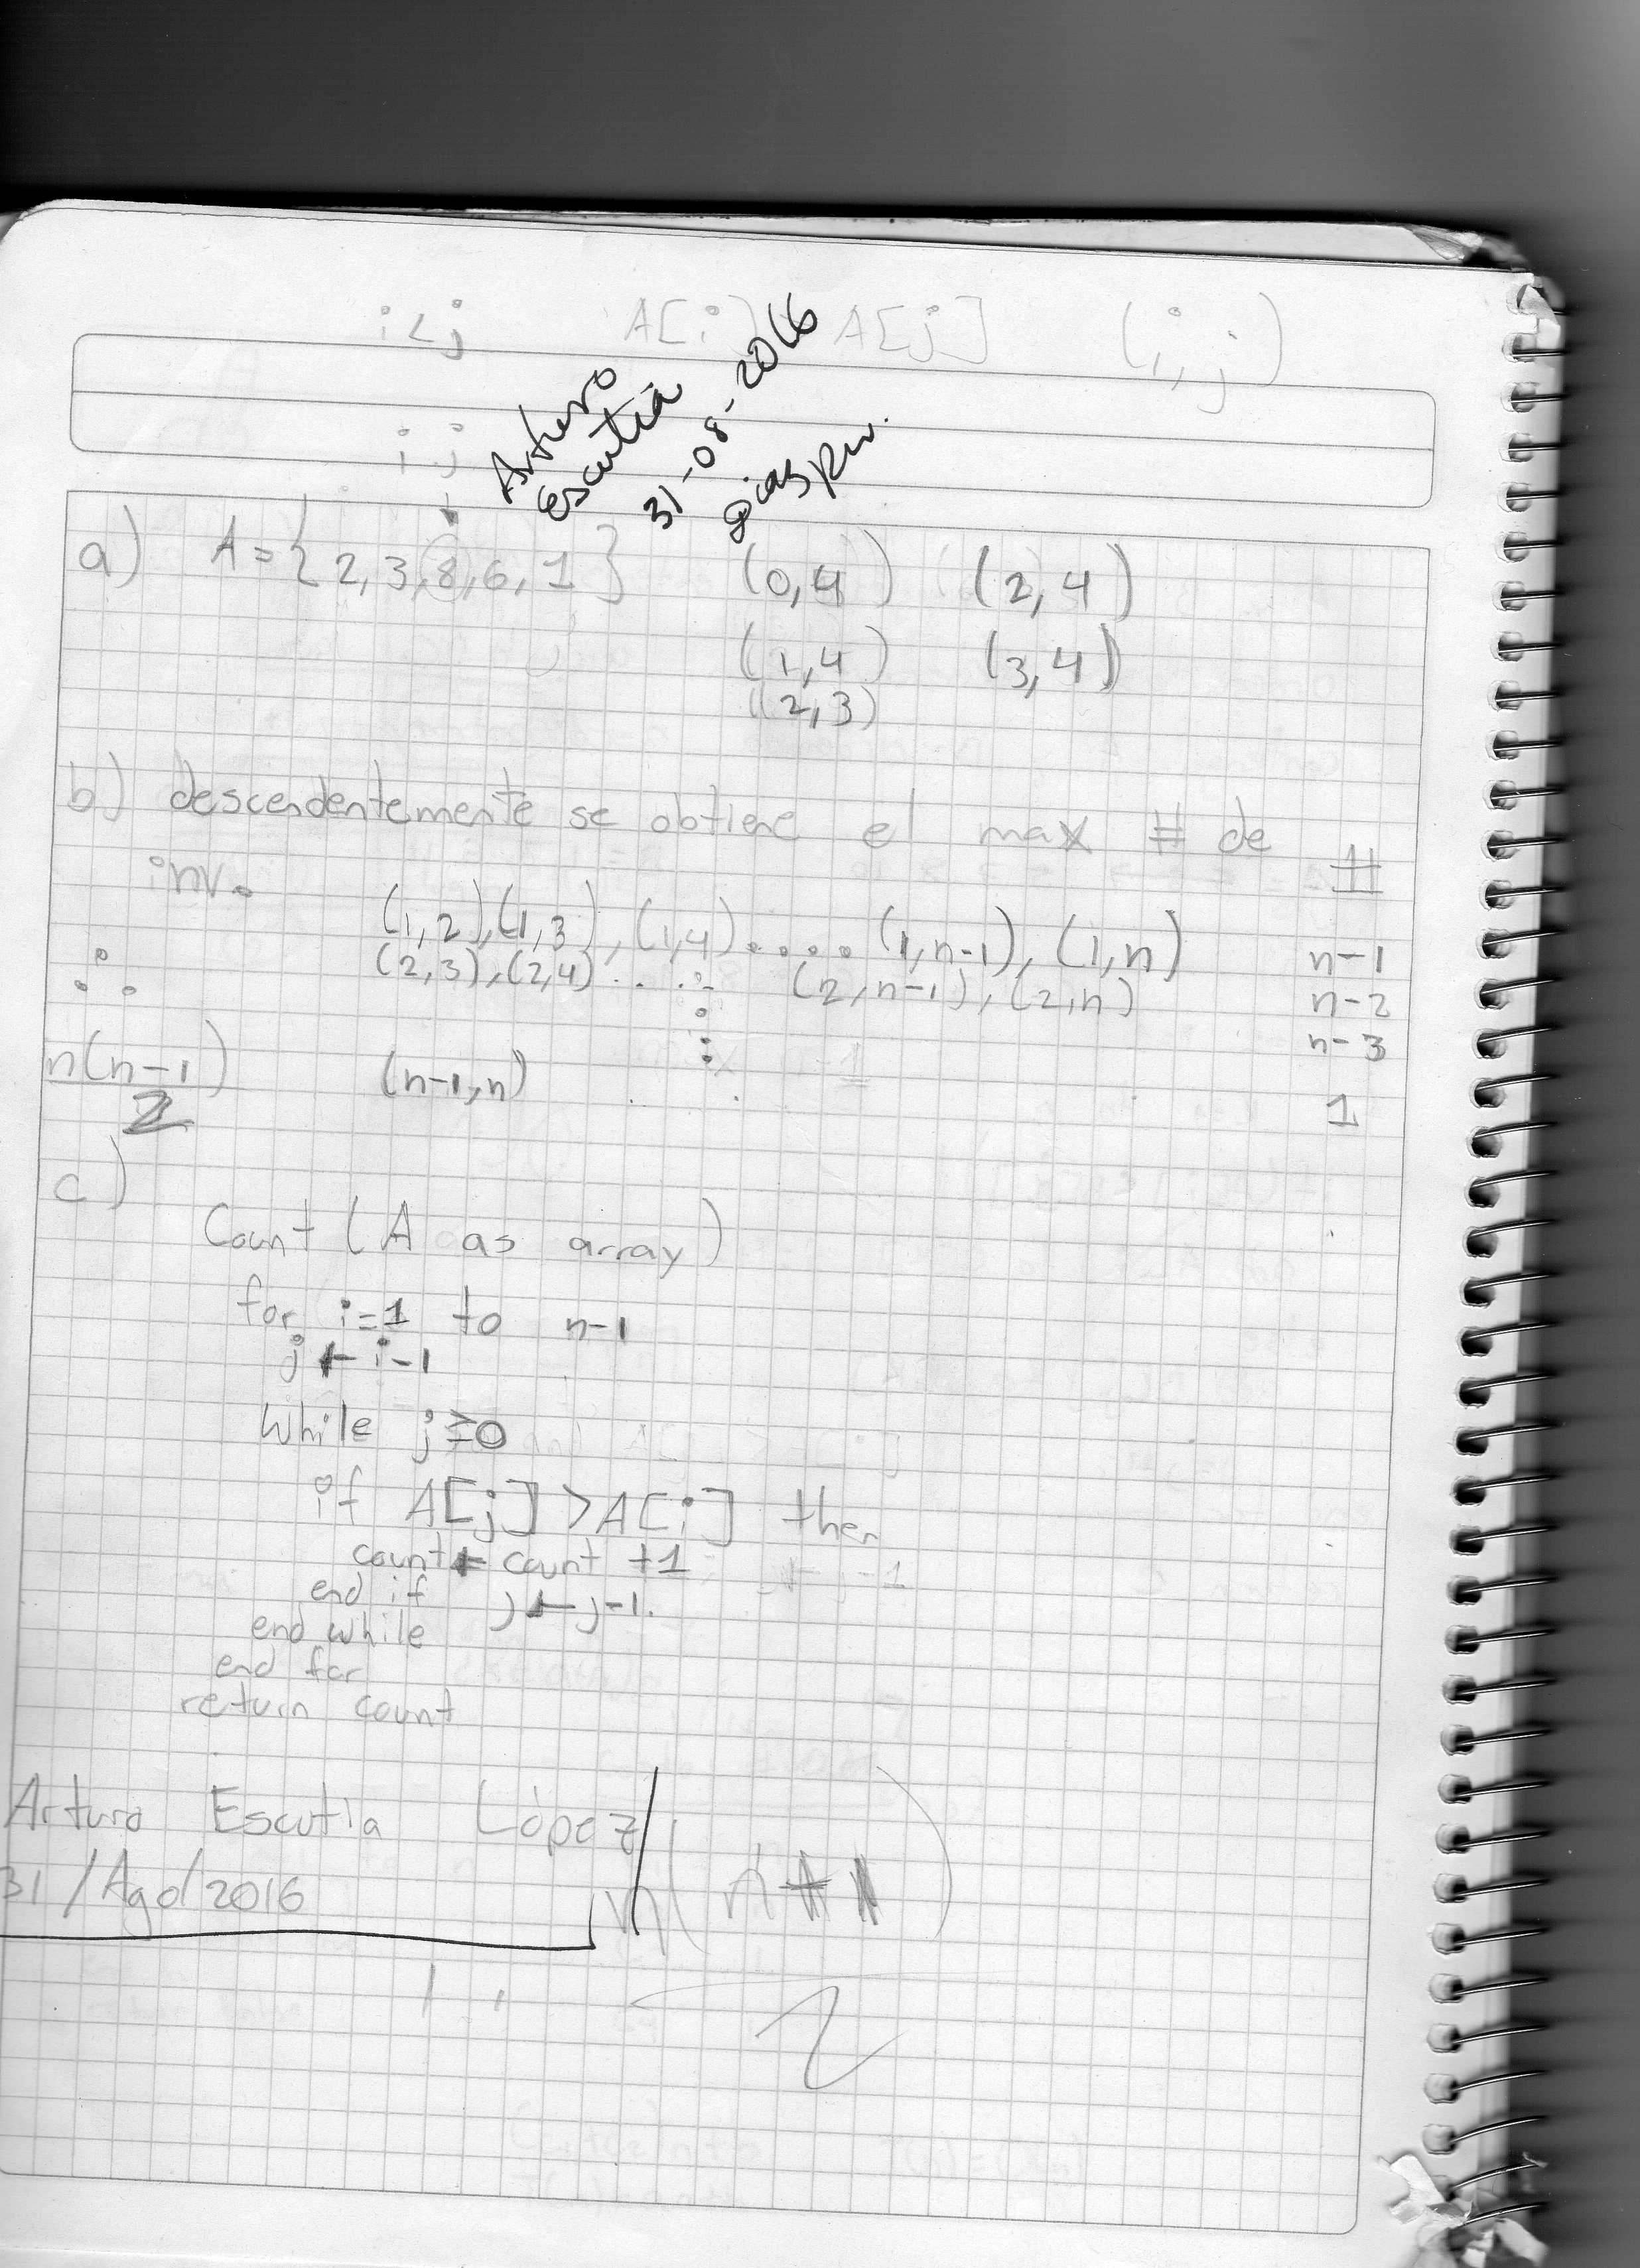 i<j A[i] A[j] (i,j)
Arturo
Escutia
31-08-2016
i j
a) A={2,3,8,6,1} (0,4) (2,4)
(1,4) (3,4)
(2,3)
b) descendentemente se obtiene el max # de
inv. #
(1,2),(1,3),(1,4)....(1,n-1),(1,n) n-1
∴ (2,3),(2,4)..... (2,n-1),(2,n) n-2
n-3
n(n-1)/2 (n-1,n) 1
c)
Count (A as array)
for i=1 to n-1
j ← i-1
while j≥0
if A[j]>A[i] then
count ← count +1
end if j←j-1.
end while
end for
return count
Arturo Escutia López
31/Ago/2016